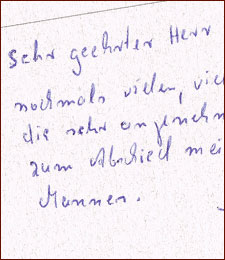 Sehr geehrter Herr
nochmals vielen, vie
die sehr angenehm
zum Abschied mei
Mannes.